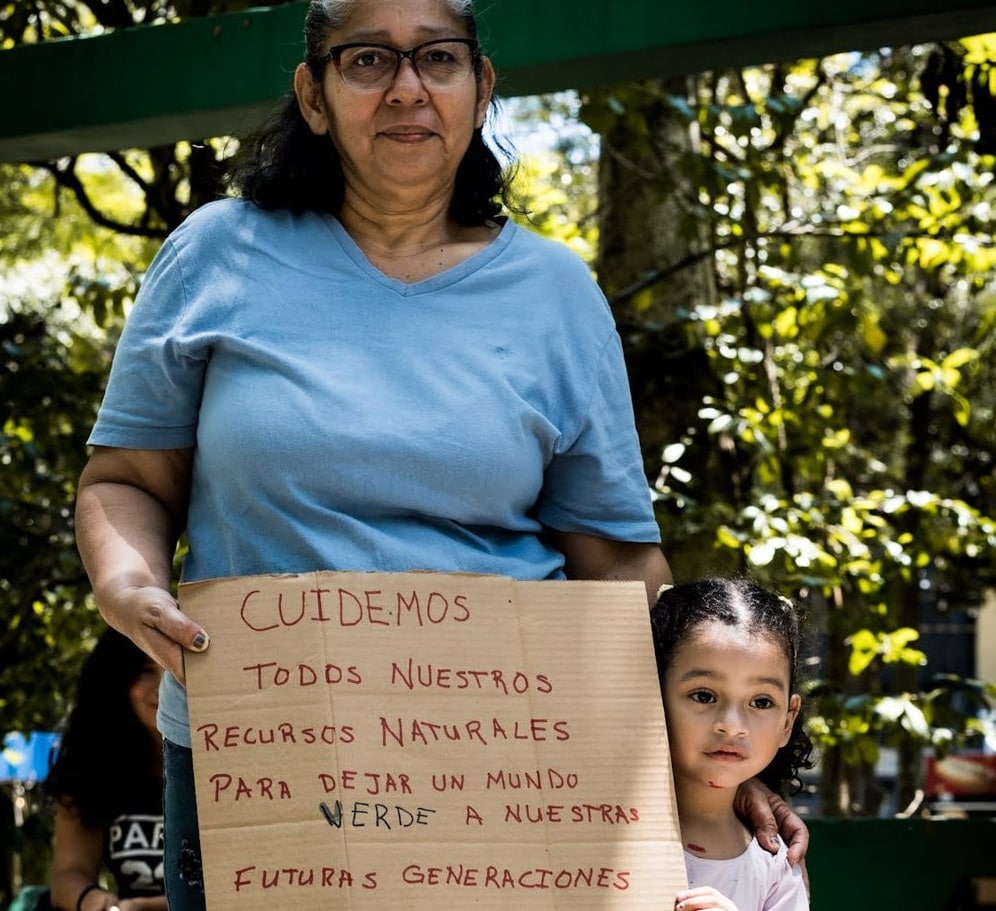 CUIDEMOS
TODOS NUESTROS
RECURSOS NATURALES
PARA DEJAR UN MUNDO
VERDE A NUESTRAS
FUTURAS GENERACIONES
PAR